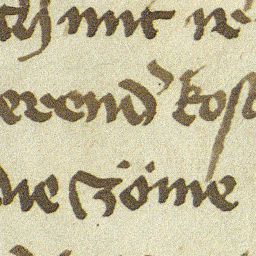 ch mit ir
erend kost
die zöme